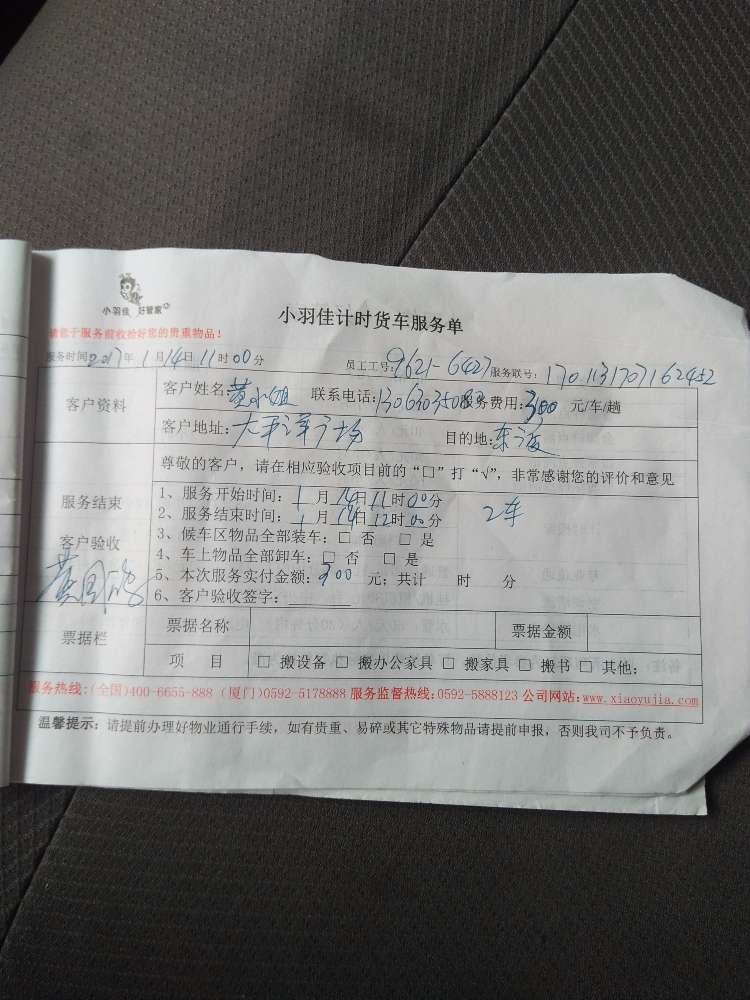 小羽佳 好管家
小羽佳计时货车服务单
请您于服务前收拾好您的贵重物品！
服务时间2017年1月14日11时00分 员工工号:9621-6427 服务联号:1701131707162452
客户资料 客户姓名:黄小姐 联系电话:1306303508 服务费用:300 元/车/趟
客户地址:太平洋广场 目的地:东渡
尊敬的客户，请在相应验收项目前的“□”打“√”，非常感谢您的评价和意见
服务结束
客户验收
1、服务开始时间:1月14日11时00分
2、服务结束时间:1月14日12时00分 2车
3、候车区物品全部装车:□ 否 □ 是
4、车上物品全部卸车:□ 否 □ 是
5、本次服务实付金额:300 元;共计 时 分
6、客户验收签字:
票据栏 票据名称 票据金额
项 目 □ 搬设备 □ 搬办公家具 □ 搬家具 □ 搬书 □ 其他:
服务热线:(全国)400-6655-888 (厦门)0592-5178888 服务监督热线:0592-5888123 公司网站:www.xiaoyujia.com
温馨提示：请提前办理好物业通行手续，如有贵重、易碎或其它特殊物品请提前申报，否则我司不予负责。